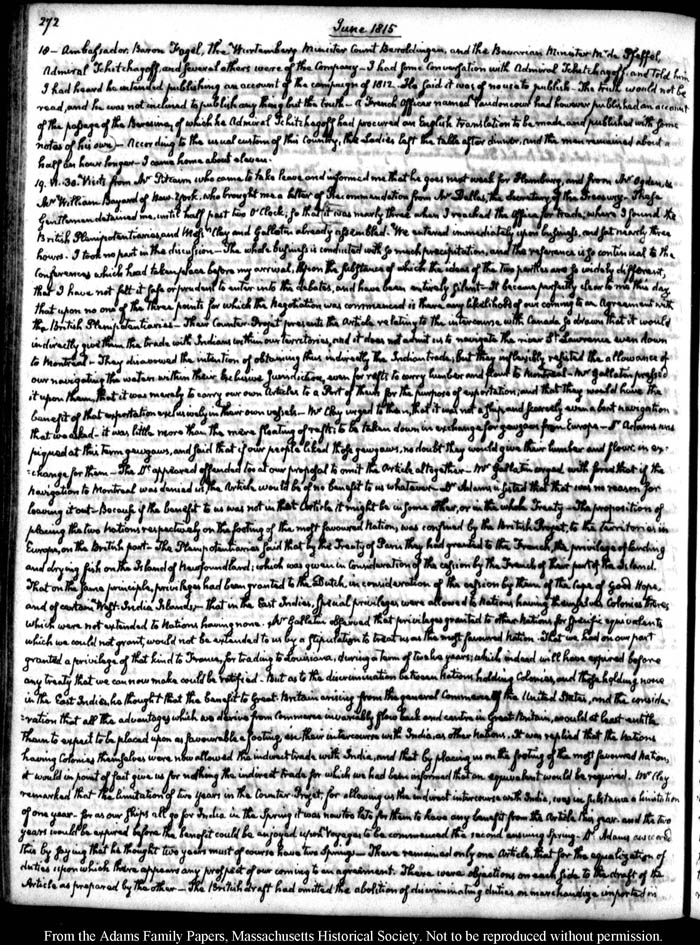 272
June 1815
18 — Ambassador, Baron Fagel, the Wurtemberg Minister Count Beroldingen, and the Bavarian Minister Mr de Pfeffel,
Admiral Tchitchagoff, and several others were of the Company — I had some Conversation with Admiral Tchitchagoff, and told him
I had heard he intended publishing an account of the campaign of 1812. He said it was of no use to publish. The truth would not be
read, and he was not inclined to publish any thing but the truth — A French Officer named Vaudoncour had however published an account
of the passage of the Beresina, of which he Admiral Tchitchagoff had procured an English translation to be made, and published with some
notes of his own — According to the usual custom of this Country, the Ladies left the table after dinner, and the men remained about a
half an hour longer — I came home about eleven.
19. VI. 30. Visits from Mr Pitcairn who came to take leave and informed me that he goes next week for Hamburg, and from Mr Ogden, &
Mr William Bayard of New York, who brought me a letter of Recommendation from Mr Dallas, the Secretary of the Treasury. These
Gentlemen detained me, until half past two O'Clock, so that it was nearly three when I reached the Office for trade, where I found the
British Plenipotentiaries, and Messrs Clay and Gallatin already assembled. We entered immediately upon business, and sat nearly three
hours. I took no part in the discussion — The whole business is conducted with so much precipitation, and the reference is so continual to the
Conferences which had taken place before my arrival, upon the substance of which the ideas of the two parties are so widely different,
that I have not felt it safe or prudent to enter into the debates, and have been entirely silent — It became perfectly clear to me this day,
that upon no one of the three points for which the Negotiation was commenced is there any likelihood of our coming to an Agreement with
the British Plenipotentiaries — Their Counter-Projet presents the Article relating to the intercourse with Canada so drawn that it would
indirectly give them the trade with Indians within our territories, and it does not admit us to navigate the river St Lawrence even down
to Montreal — They disavowed the intention of obtaining thus indirectly the Indian trade; but they inflexibly resisted the allowance of
our navigating the waters within their Exclusive Jurisdiction, even for rafts to carry lumber and flour to Montreal — Mr Gallatin pressed
it upon them, that it was merely to carry our own Articles to a Port of theirs for the purpose of exportation; and that they would have the
benefit of that exportation exclusively in their own vessels — Mr Clay urged to them, that it was not a ship and scarcely even a boat navigation
that we asked — it was little more than the mere floating of rafts; to be taken down in exchange for gewgaws from Europe — Dr Adams was
piqued at this term gewgaws, and said that if our people liked those gewgaws, no doubt they would give their lumber and flour in ex-
-change for them — The Dr appeared offended too at our proposal to omit the Article altogether — Mr Gallatin urged with force that if the
Navigation to Montreal was denied us, the Article would be of no benefit to us whatever — Dr Adams insisted that that was no reason for
leaving it out — Because if the benefit to us was not in that Article, it might be in some other, or in the whole Treaty — The proposition of
placing the two Nations respectively on the footing of the most favoured Nation, was confined by the British Projet, to the territories in
Europe, on the British part — The Plenipotentiaries said that by the Treaty of Paris they had granted to the French, the privilege of landing
and drying fish on the Island of Newfoundland; which was given in consideration of the cession by the French of their part of the Island.
That on the same principle, privileges had been granted to the Dutch, in consideration of the cession by them of the Cape of Good Hope,
and of certain West-India Islands — that in the East Indies, special privileges were allowed to Nations having themselves Colonies there,
which were not extended to Nations having none. Mr Gallatin observed that privileges granted to other Nations for specific equivalents
which we could not grant, would not be extended to us by a stipulation to treat us as the most favoured Nation. That we had on our part
granted a privilege of that kind to France, for trading to Louisiana, during a term of twelve years; which indeed will have expired before
any treaty that we can now make could be ratified — But as to the discrimination between Nations holding Colonies, and those holding none
in the East Indies, he thought that the benefit to Great-Britain arising from the general Commerce of the United States, and the conside-
-ration that all the advantages which we derive from Commerce invariably flow back and centre in Great Britain, would at least entitle
them to expect to be placed upon as favourable a footing, in their intercourse with India, as other Nations. It was replied that the Nations
having Colonies themselves were now allowed the indirect trade with India, and that by placing us on the footing of the most favoured Nation,
it would in point of fact give us for nothing the indirect trade for which we had been informed that an equivalent would be required. Mr Clay
remarked that the limitation of two years in the Counter-Projet, for allowing us the indirect intercourse with India, was in substance a limitation
of one year — for as our Ships all go for India in the Spring it was now too late for them to have any benefit from the Article this year — and the two
years would be expired before the benefit could be enjoyed upon Voyages to be commenced the second ensuing Spring. Dr Adams
this by saying that he thought two years must of course have two Springs — There remained only one Article, that for the equalization of
duties upon which there appears any prospect of our coming to an agreement. There were objections on each side to the draft of the
Article as prepared by the other — The British draft had omitted the abolition of discriminating duties on merchandize imported in
From the Adams Family Papers, Massachusetts Historical Society. Not to be reproduced without permission.